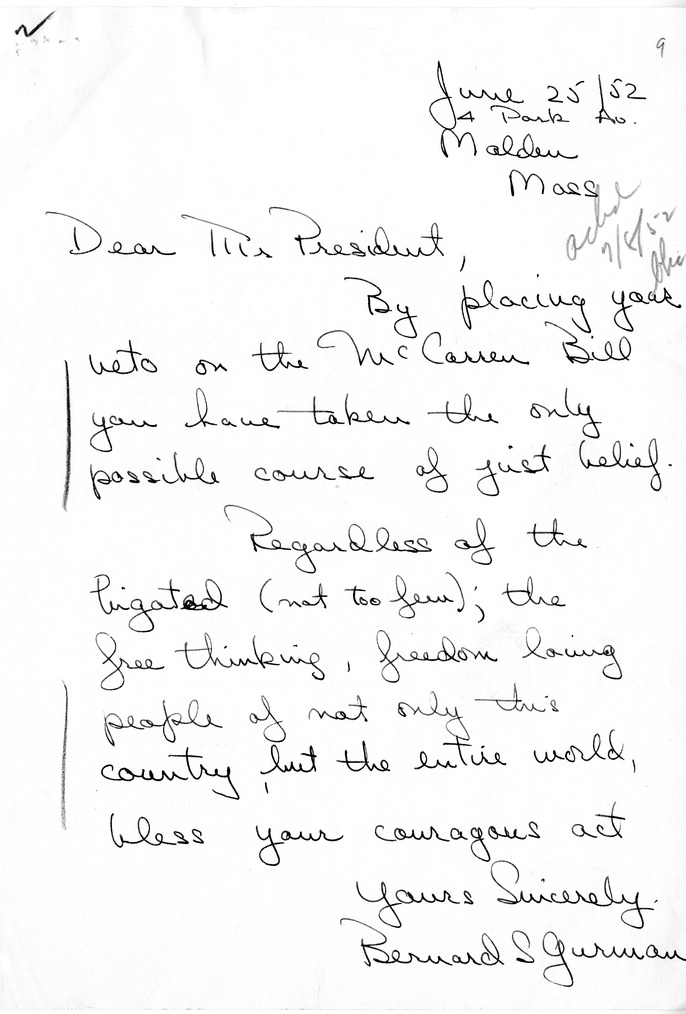 9
June 25/52
4 Park Av.
Malden
Mass
ackd
7/8/52
Dear Mr President,
By placing your
veto on the McCarren Bill
you have taken the only
possible course of just belief.
Regardless of the
bigated (not too few); the
free thinking, freedom loving
people of not only this
country, but the entire world,
bless your couragous act
Yours Sincerely.
Bernard S Gurman